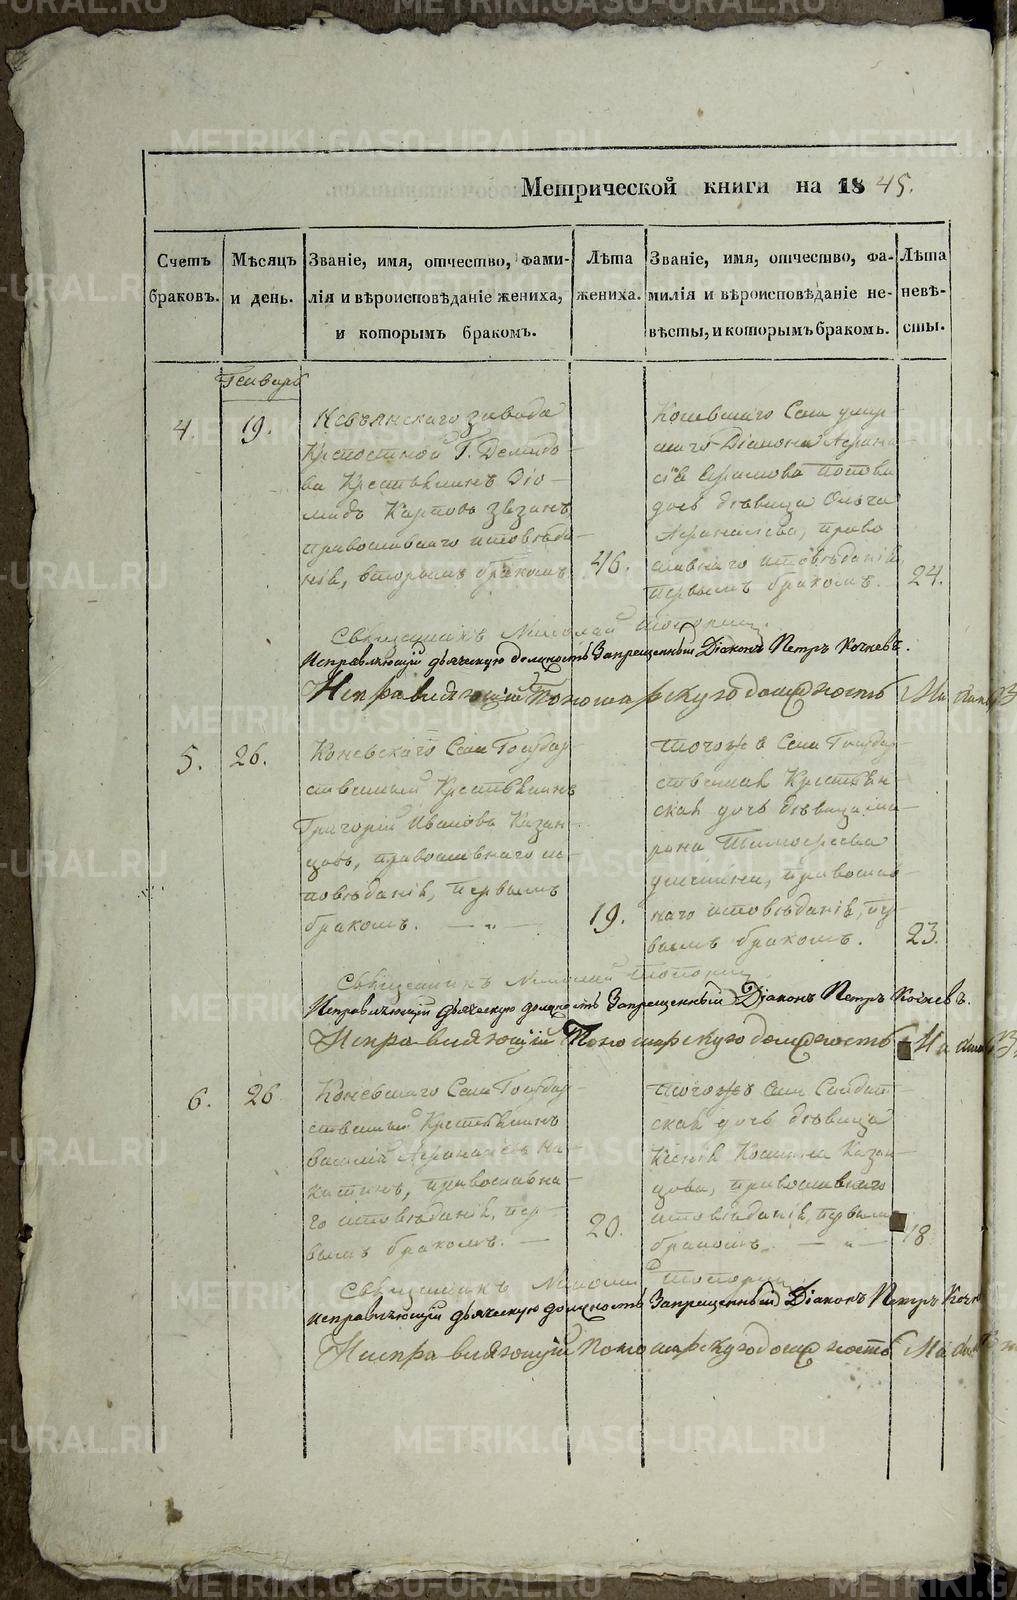 Метрической книги на 1845.
Счетъ браковъ.
Мѣсяцъ и день.
Званіе, имя, отчество, фамилія и вѣроисповѣданіе жениха, и которымъ бракомъ.
Лѣта жениха.
Званіе, имя, отчество, фамилія и вѣроисповѣданіе невѣсты, и которымъ бракомъ.
Лѣта невѣсты.
Генварь
4.
19.
Невьянскаго завода
Крѣпостной Г. Демидо-
ва Крестьянинъ Діо-
мидъ Карповъ
православнаго исповѣда-
нія, вторымъ бракомъ
46.
Коневскаго Села умер-
шаго Діакона Афана-
сія Ефимова Попова
дочь дѣвица Ольга
Афанасьева, право
славнаго исповѣданія
первымъ бракомъ.
24.
Священникъ Николай Топорин
Исправляющій дьяческую должность Запрещенный Діаконъ Петръ Кочневъ.
Исправляющій Пономарскую должность
5.
26.
Коневскаго Села Государ-
ственный Крестьянинъ
Григорій Ивановъ Казан-
цовъ, православнаго ис
повѣданія, первымъ
бракомъ. — „ —
19.
Тогожъ Села Государ-
ственная Крестьян-
ская дочь дѣвица Ма-
рона Тимофеева
православ-
наго исповѣданія, пер-
вымъ бракомъ.
23.
Священникъ Николай Топорин
Исправляющій дьяческую должность Запрещенный Діаконъ Петръ Кочневъ.
Исправляющій Пономарскую должность
6.
26
Коневскаго Села Государ-
ственный Крестьянинъ
Василій Афанасьевъ Ни-
китинъ, православна-
го исповѣданія, пер-
вымъ бракомъ. —
20.
Тогожъ Села Солдат
ская дочь дѣвица
Ксенія Козмина Казан-
цова, православнаго
исповѣданія, первымъ
бракомъ. — „ —
18
Священникъ Николай Топорин
исправляющій дьяческую должность Запрещенный Діаконъ Петръ Кочн
Исправляющій Пономарскую должность
METRIKI.GASO-URAL.RU